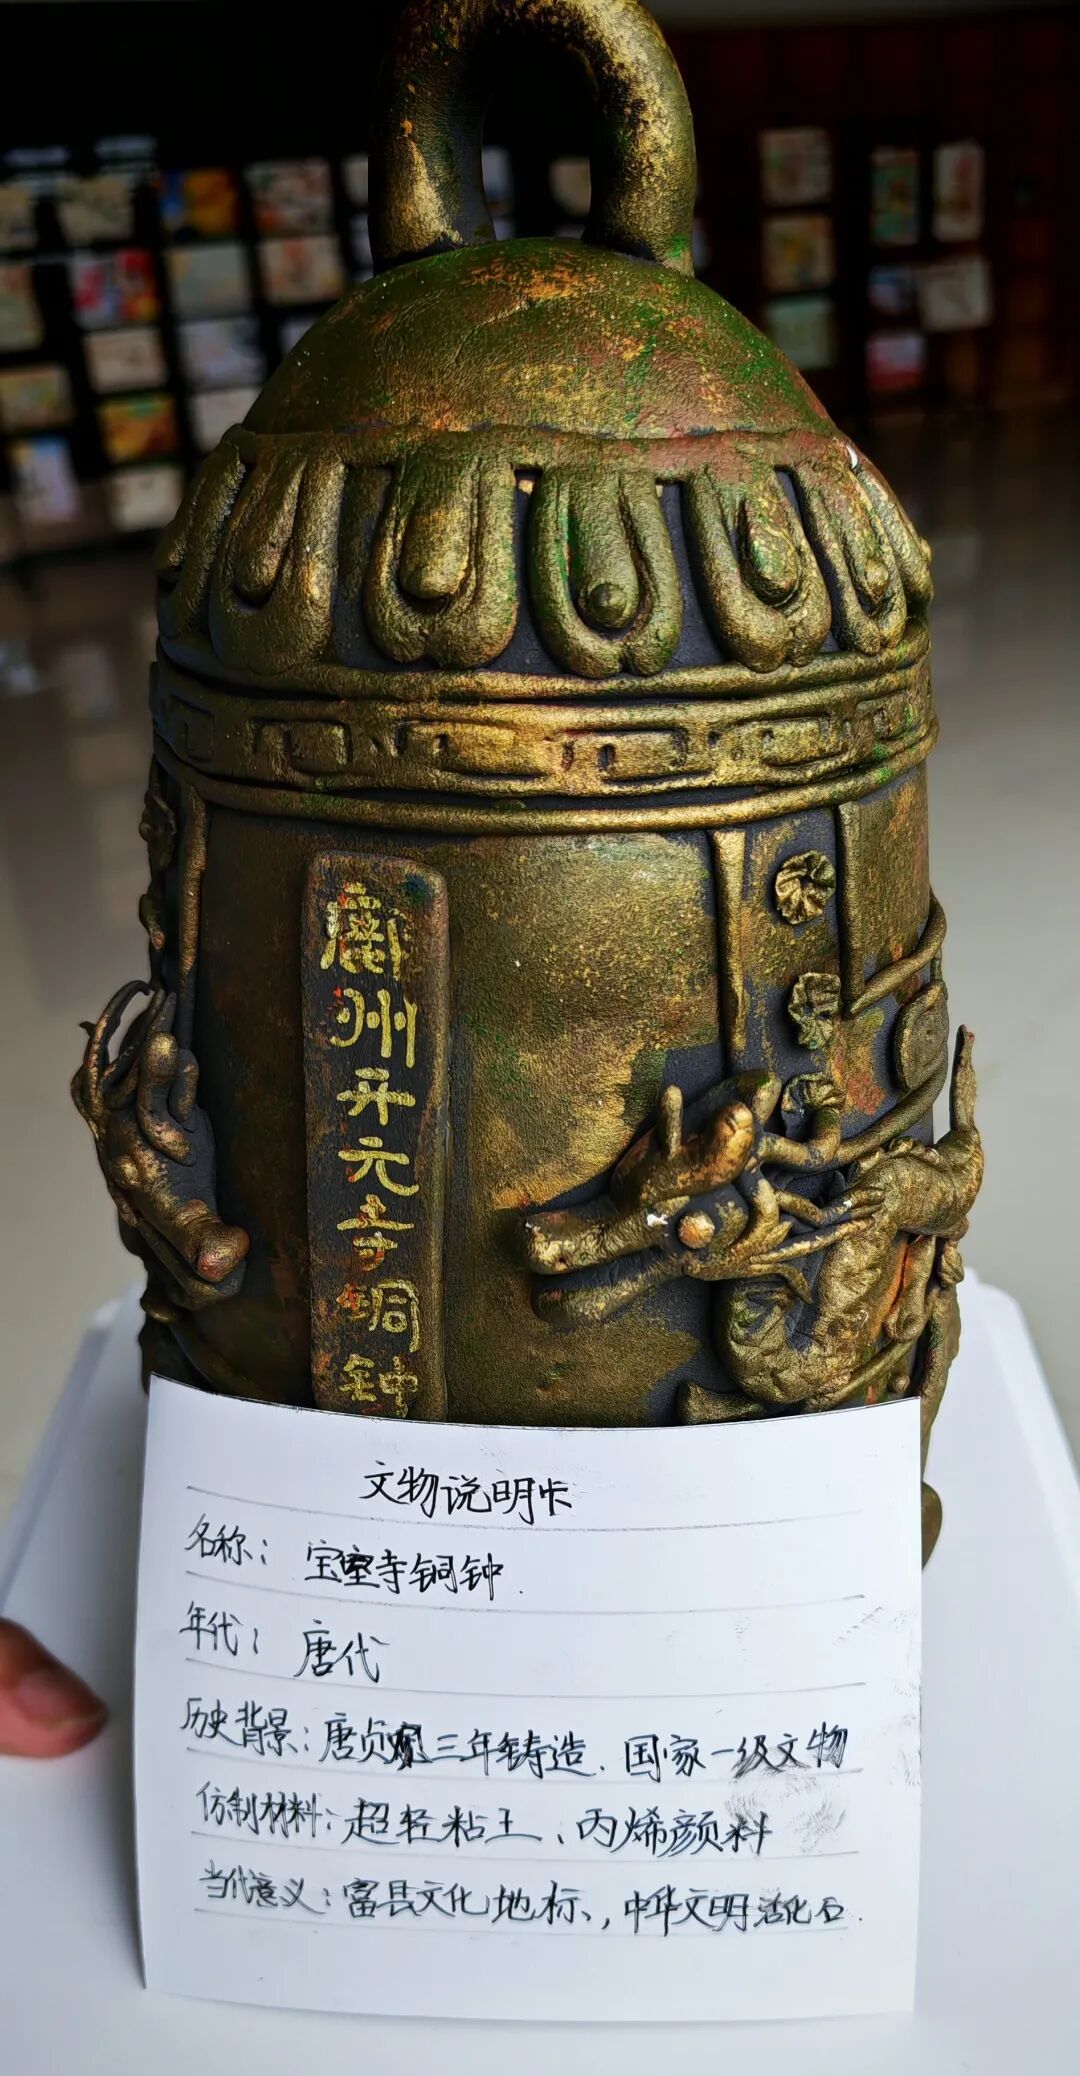 鄜州开元寺铜钟
文物说明卡
名称：宝室寺铜钟.
年代：唐代
历史背景：唐贞观三年铸造.国家一级文物
仿制材料：超轻粘土、丙烯颜料
当代意义：富县文化地标，中华文明活化石.